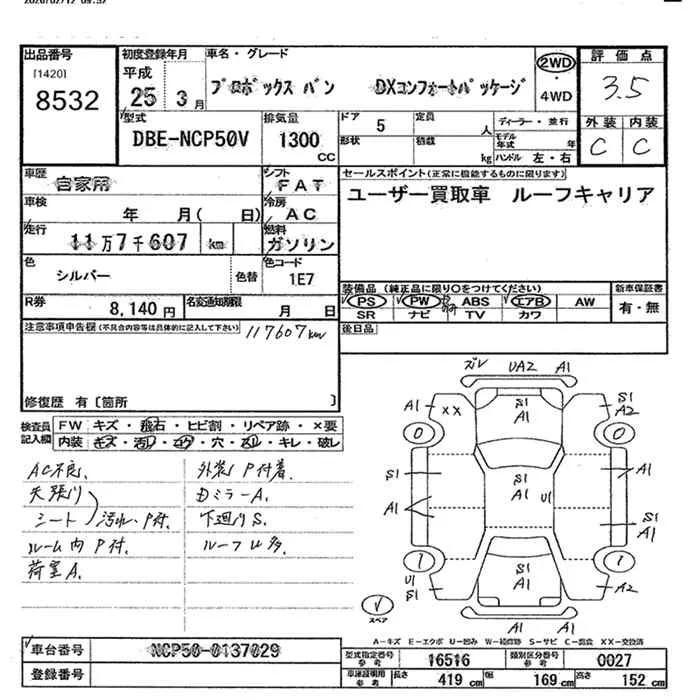 2020/02/12 09:57
出品番号
[1420]
8532
初度登録年月
平成
25年 3月
車名・グレード
プロボックス バン DXコンフォートパッケージ
2WD
・
4WD
評価点
3.5
外装 内装
C C
型式
DBE-NCP50V
排気量
1300 CC
ドア 5
定員 人
形状
積載 kg
ディーラー・並行
モデル年式 年
ハンドル 左・右
車歴
自家用
シフト
FAT
車検
年 月( 日)
冷房
AC
走行
11万7千607 km
燃料
ガソリン
色
シルバー
色替
色コード
1E7
R券
8,140円
名変通知期限
月 日
セールスポイント(正常に機能するものに限ります)
ユーザー買取車 ルーフキャリア
装備品(純正品に限り○をつけてください)
PS PW ABS エアB AW
SR ナビ TV カワ
新車保証書
有・無
後日品
注意事項申告欄(不具合内容等は具体的に記入して下さい)
117607km
修復歴 有〔箇所 〕
検査員記入欄
FW キズ・飛石・ヒビ割・リペア跡・×要
内装 キズ・汚れ・コゲ・穴・スレ・キレ・破レ
AC不良.
天張り
シート 汚れ・P付.
ルーム内P付.
荷室A.
外装P付着.
Dミラ-A.
下廻りS.
ルーフU多.
ズレ UA2 A1
A1 XX S1 A1 S1 A2
0 0
S1 S1 A1 U1 A1
A1 S1 A1
1 1
U1 S1 S1 A1 A2
A1 A1
スペア
A-キズ E-エクボ U-凹み W-補修跡 S-サビ C-腐食 XX-交換済
車台番号
NCP50-0137029
登録番号
型式指定番号参考
16516
類別区分番号参考
0027
車庫証明用参考
長さ 419 cm 幅 169 cm 高さ 152 cm